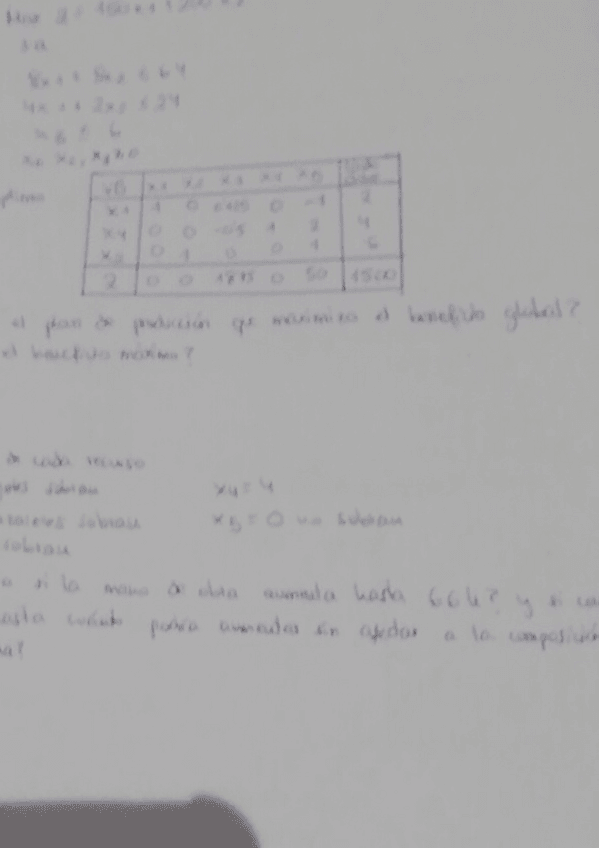 Max Z = 150x1 + 200x2
s.a
8x1 + 8x2 ≤ 64
4x1 + 2x2 ≤ 24
x2 ≤ 6
x1, x2, x3 ≥ 0
VB x1 x2 x3 x4 x5
x1 1 0 0'125 0 -1 2
x4 0 0 -0'5 1 2 4
x2 0 1 0 0 1 6
Z 0 0 18'75 0 50 1500
el plan de producción que maximiza el beneficio global?
el beneficio máximo?
de cada recurso
sobran x4 = 4
sobran x5 = 0 no sobran
sobran
si la mano de obra aumenta hasta 66h? y si
hasta cuánto podría aumentar sin afectar a la composición